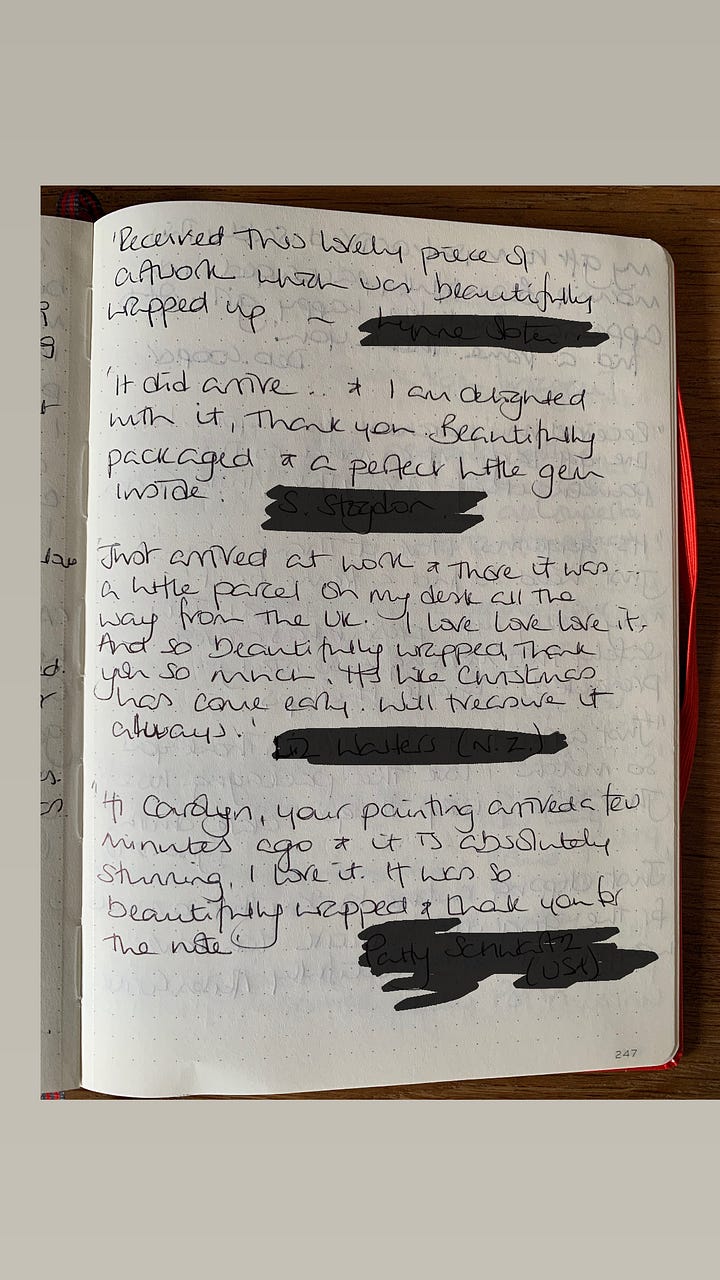 'Received This lovely piece of
artwork which was beautifully
wrapped up ~
'It did arrive.. & I am delighted
with it, Thank you. Beautifully
packaged & a perfect little gem
inside.'
'Just arrived at work & there it was...
a little parcel on my desk all the
way from the UK. I love love love it.
And so beautifully wrapped, Thank
you so much. It's like Christmas
has come early. Will treasure it
always.'
"Hi Carolyn, your painting arrived a few
minutes ago & it is absolutely
stunning, I love it. It was so
beautifully wrapped & thank you for
the note
247